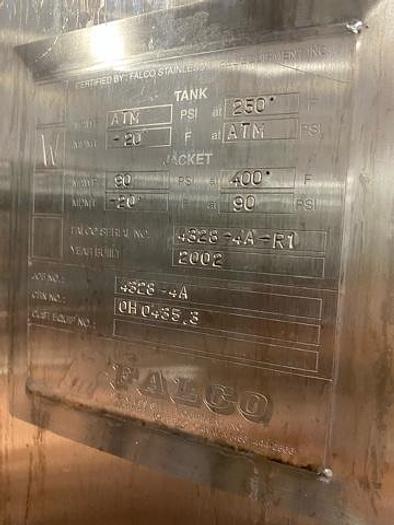 CERTIFIED BY: FALCO STAINLESS EQUIPMENT INC.
TANK
ATM PSI at 250° F
MDMT -20° F at ATM PSI
W
JACKET
MAWP 90 PSI at 400° F
MDMT -20° F at 90 PSI
FALCO SERIAL NO. 4328-4A-R1
YEAR BUILT 2002
JOB NO.: 4328-4A
CRN NO.: OH0435.3
CUST. EQUIP NO.:
FALCO